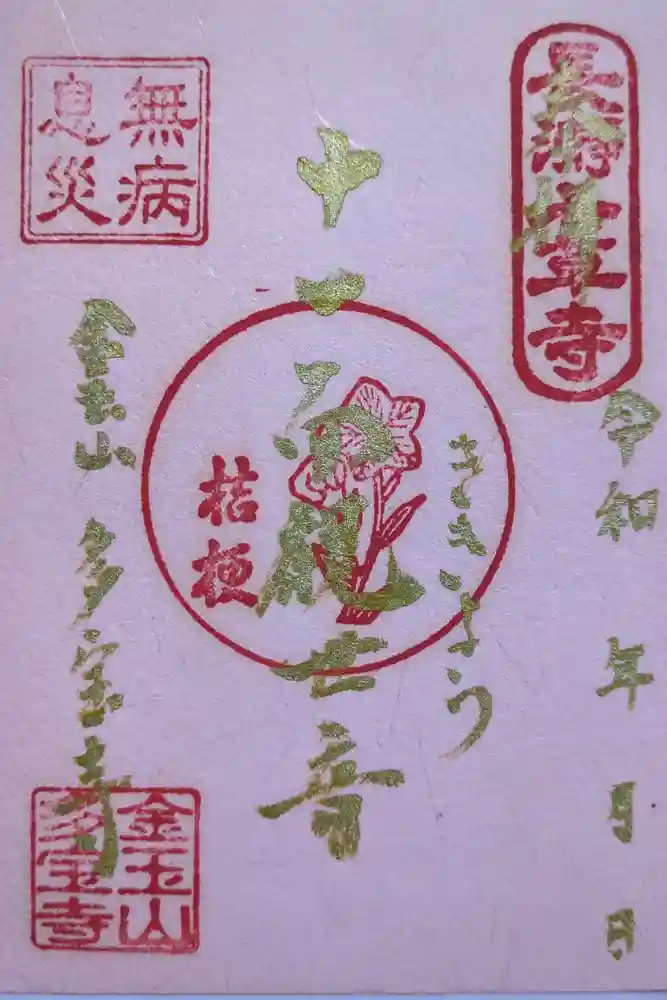 長瀞七草寺
奉拝
令和 年 月 日
ききょう
十一面観世音
桔梗
無病
息災
金玉山 多宝寺
金玉山
多宝寺